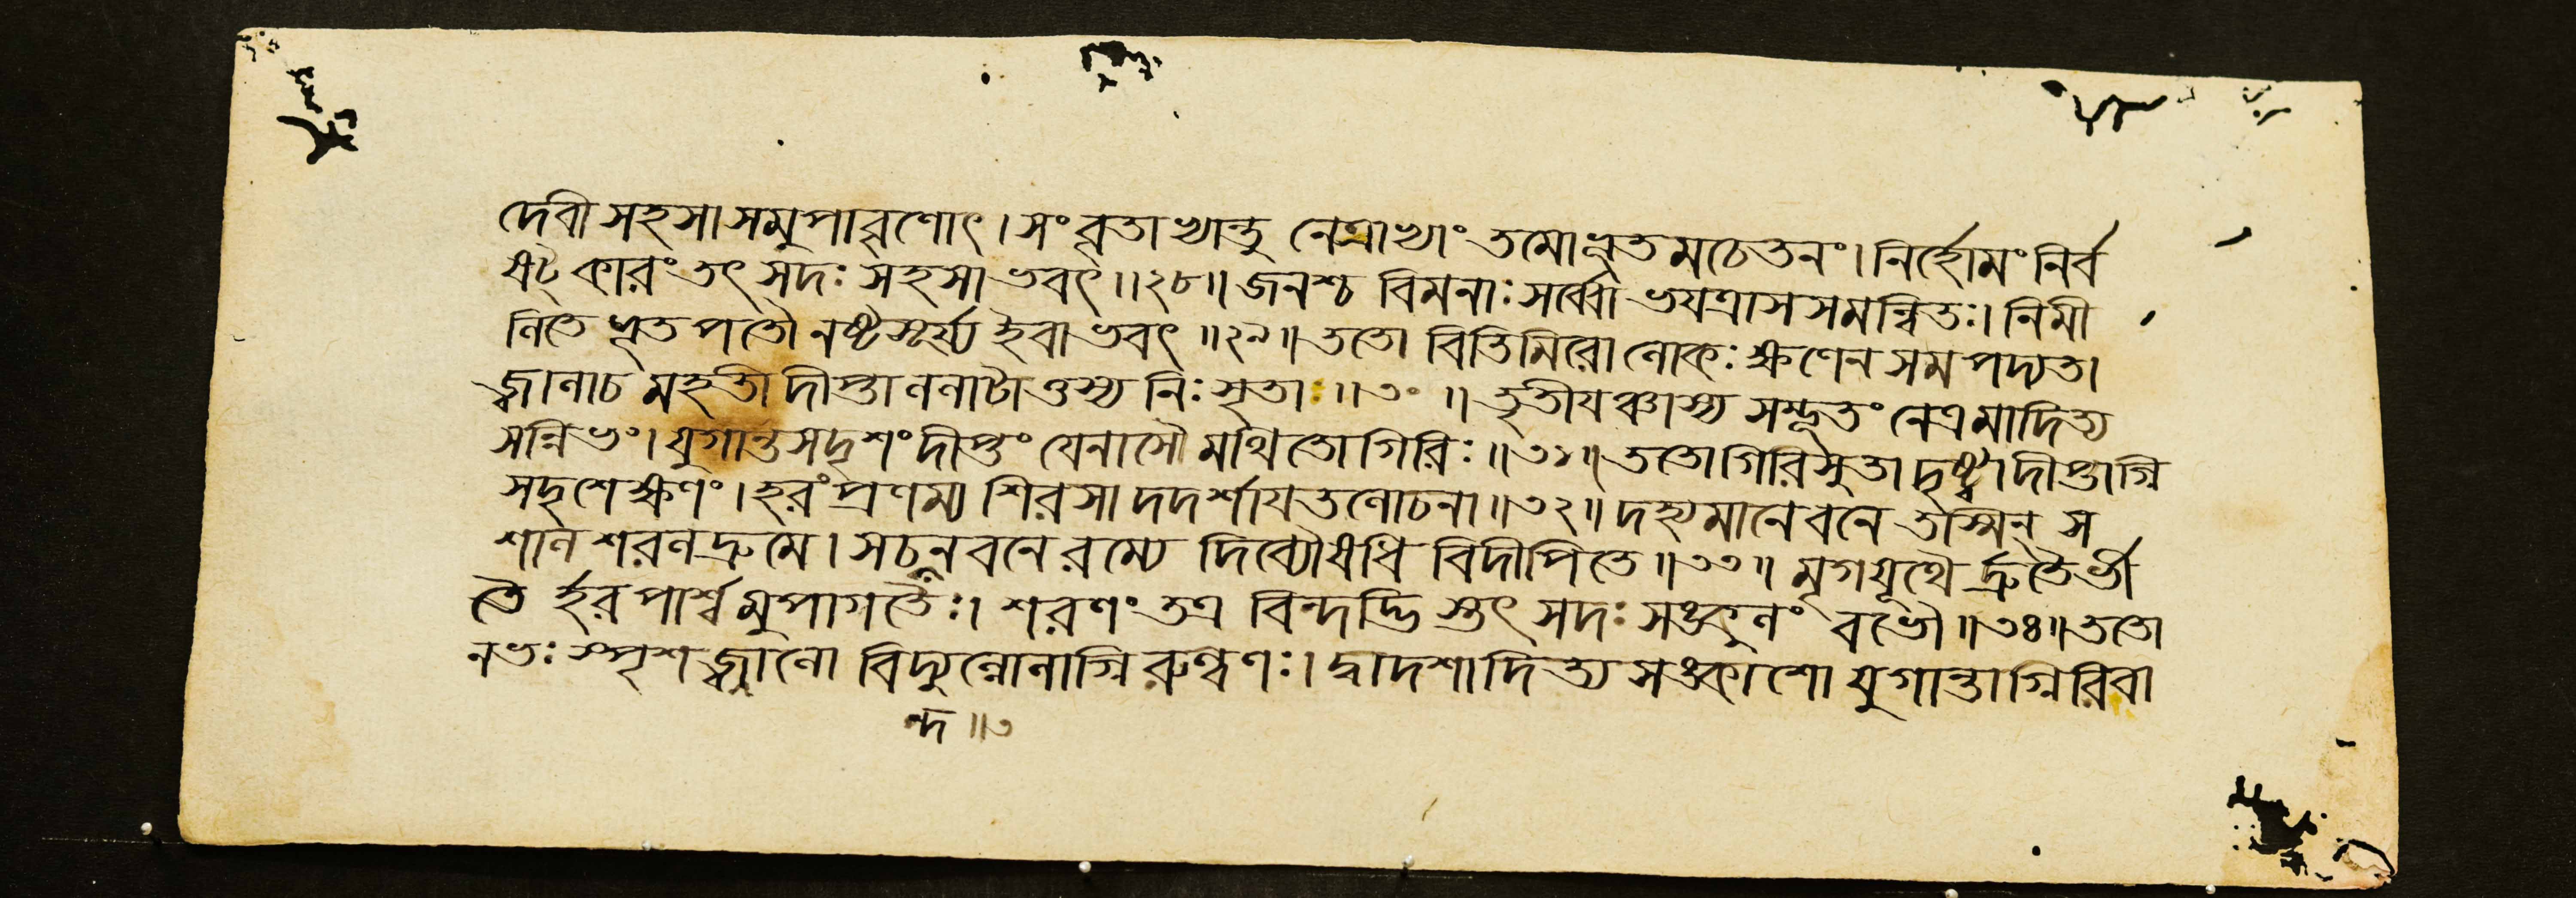 দেবী সহসা সমুপাবৃণোৎ। সংবৃতাভ্যান্তু নেত্রাভ্যাং তমোভূতমচেতনং। নির্হোমং নির্ব
ষট্কারং তৎ সদঃ সহসা ভবৎ॥২৮॥ জনশ্চ বিমনাঃ সর্ব্বো ভযত্রাসসমন্বিতঃ। নিমী
লিতে ভূতপতৌ নষ্টসূর্য্য ইবাভবৎ॥২৯॥ ততো বিতিমিরো লোকঃ ক্ষণেন সমপদ্যত।
জ্বালাচ মহতী দীপ্তা ললাটাত্তস্য নিঃসৃতাঃ॥৩০॥ তৃতীযঞ্চাস্য সম্ভূতং নেত্রমাদিত্য
সন্নিভং। যুগান্তসদৃশং দীপ্তং যেনাসৌ মথিতো গিরিঃ॥৩১॥ ততো গিরিসুতা দৃষ্ট্বা দীপ্তাগ্নি
সদৃশেক্ষণং। হরং প্রণম্য শিরসা দদর্শাযতলোচনা॥৩২॥ দহ্যমানে বনে তস্মিন্ স
শাল শরলদ্রুমে। সচন্দনবনে রম্যে দিব্যৌষধি বিদীপিতে॥৩৩॥ মৃগযূথৈর্দ্রুতৈর্ভী
তৈ র্হরপার্শ্বমুপাগতৈঃ। শরণং তত্র বিন্দদ্ভিস্তৎ সদঃ সঙ্কুলং বভৌ॥৩৪॥ ততো
নভঃস্পৃশজ্বালো বিদ্যুল্লোলাগ্নিরুল্বণঃ। দ্বাদশাদিত্য সঙ্কাশো যুগান্তাগ্নিরিবা
ন্দ॥৩